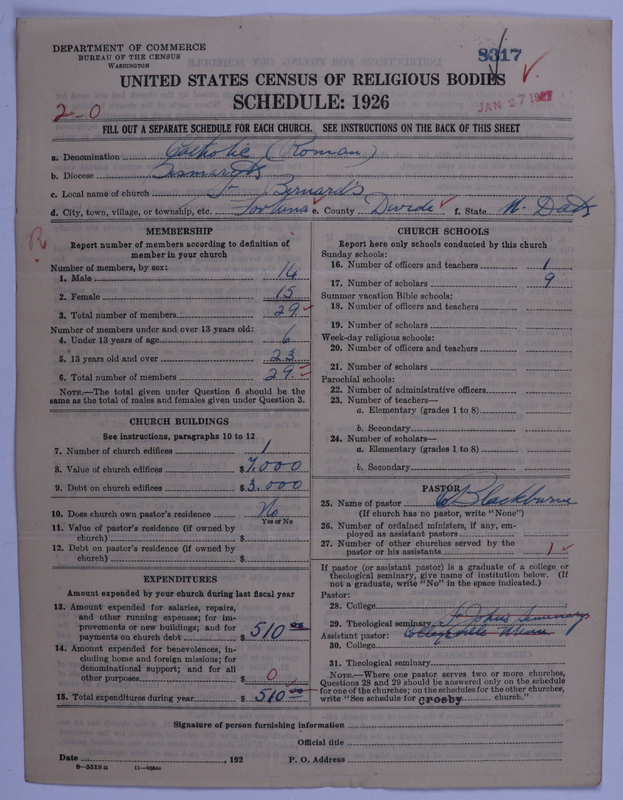 DEPARTMENT OF COMMERCE
BUREAU OF THE CENSUS
WASHINGTON
8317
UNITED STATES CENSUS OF RELIGIOUS BODIES
JAN 27 1927
SCHEDULE: 1926
2-0
FILL OUT A SEPARATE SCHEDULE FOR EACH CHURCH. SEE INSTRUCTIONS ON THE BACK OF THIS SHEET
a. Denomination Catholic (Roman)
b. Diocese Bismarck
c. Local name of church St Bernard's
d. City, town, village, or township, etc. Fortuna e. County Divide f. State N. Dak
R
MEMBERSHIP
Report number of members according to definition of member in your church
Number of members, by sex:
1. Male 14
2. Female 15
3. Total number of members 29
Number of members under and over 13 years old:
4. Under 13 years of age 6
5. 13 years old and over 23
6. Total number of members 29
NOTE.—The total given under Question 6 should be
same as the total of males and females given under Question 3.
CHURCH BUILDINGS
See instructions, paragraphs 10 to 12
7. Number of church edifices 1
8. Value of church edifices $7,000
9. Debt on church edifices $3,000
10. Does church own pastor's residence No
Yes or No
11. Value of pastor's residence (if owned by
church) $
12. Debt on pastor's residence (if owned by
church) $
EXPENDITURES
Amount expended by your church during last fiscal year
13. Amount expended for salaries, repairs,
and other running expenses; for im-
provements or new buildings; and for
payments on church debt $ 510 00
14. Amount expended for benevolences, in-
cluding home and foreign missions; for
denominational support; and for all
other purposes $ 0
15. Total expenditures during year $ 510 00
CHURCH SCHOOLS
Report here only schools conducted by this church
Sunday schools:
16. Number of officers and teachers 1
17. Number of scholars 9
Summer vacation Bible schools:
18. Number of officers and teachers
19. Number of scholars
Week-day religious schools:
20. Number of officers and teachers
21. Number of scholars
Parochial schools:
22. Number of administrative officers
23. Number of teachers—
a. Elementary (grades 1 to 8)
b. Secondary
24. Number of scholars—
a. Elementary (grades 1 to 8)
b. Secondary
PASTOR
25. Name of pastor Blackburne
(If church has no pastor, write "None")
26. Number of ordained ministers, if any, em-
ployed as assistant pastors
27. Number of other churches served by the
pastor or his assistants 1
If pastor (or assistant pastor) is a graduate of a college or
theological seminary, give name of institution below. (If
not a graduate, write "No" in the space indicated.)
Pastor:
28. College
29. Theological seminary St John's Seminary
Assistant pastor: Collegeville Minn
30. College
31. Theological seminary
NOTE.—Where one pastor serves two or more churches,
Questions 28 and 29 should be answered only on the schedule
for one of the churches; on the schedules for the other churches,
write "See schedule for crosby church."
Signature of person furnishing information
Official title
Date , 192 P. O. Address
8—5318a 11—9286a